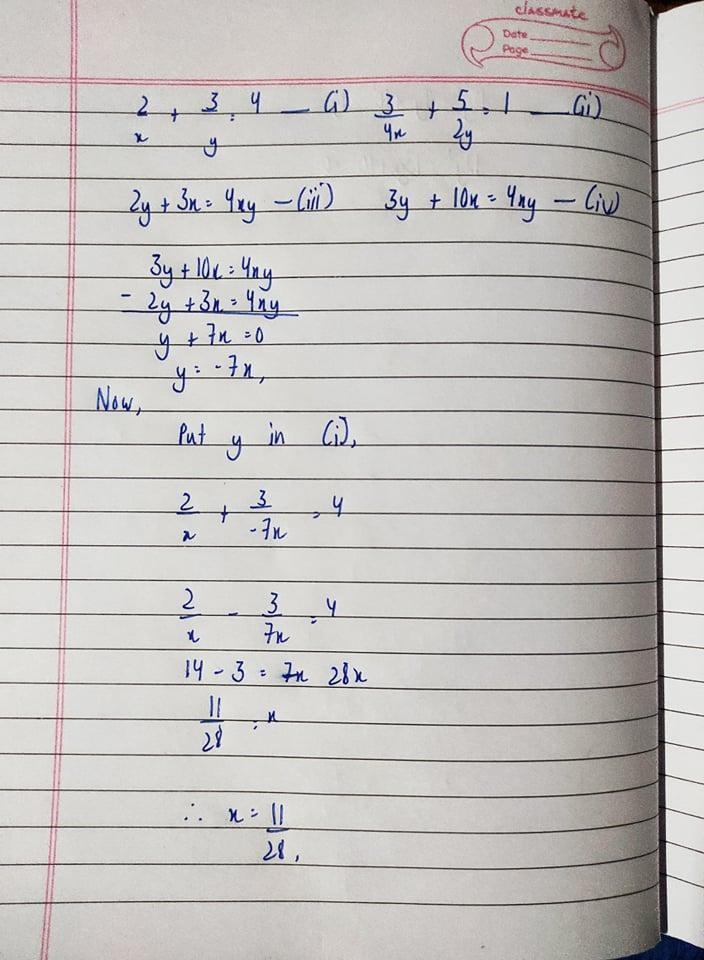 classmate
Date
Page
2/x + 3/y = 4 — (i) 3/4x + 5/2y = 1 — (ii)
2y + 3x = 4xy — (iii) 3y + 10x = 4xy — (iv)
3y + 10x = 4xy
- 2y + 3x = 4xy
y + 7x = 0
y = -7x,
Now,
Put y in (i),
2/x + 3/-7x = 4
2/x - 3/7x = 4
14 - 3 = 7x 28x
11/28 = x
∴ x = 11/28,